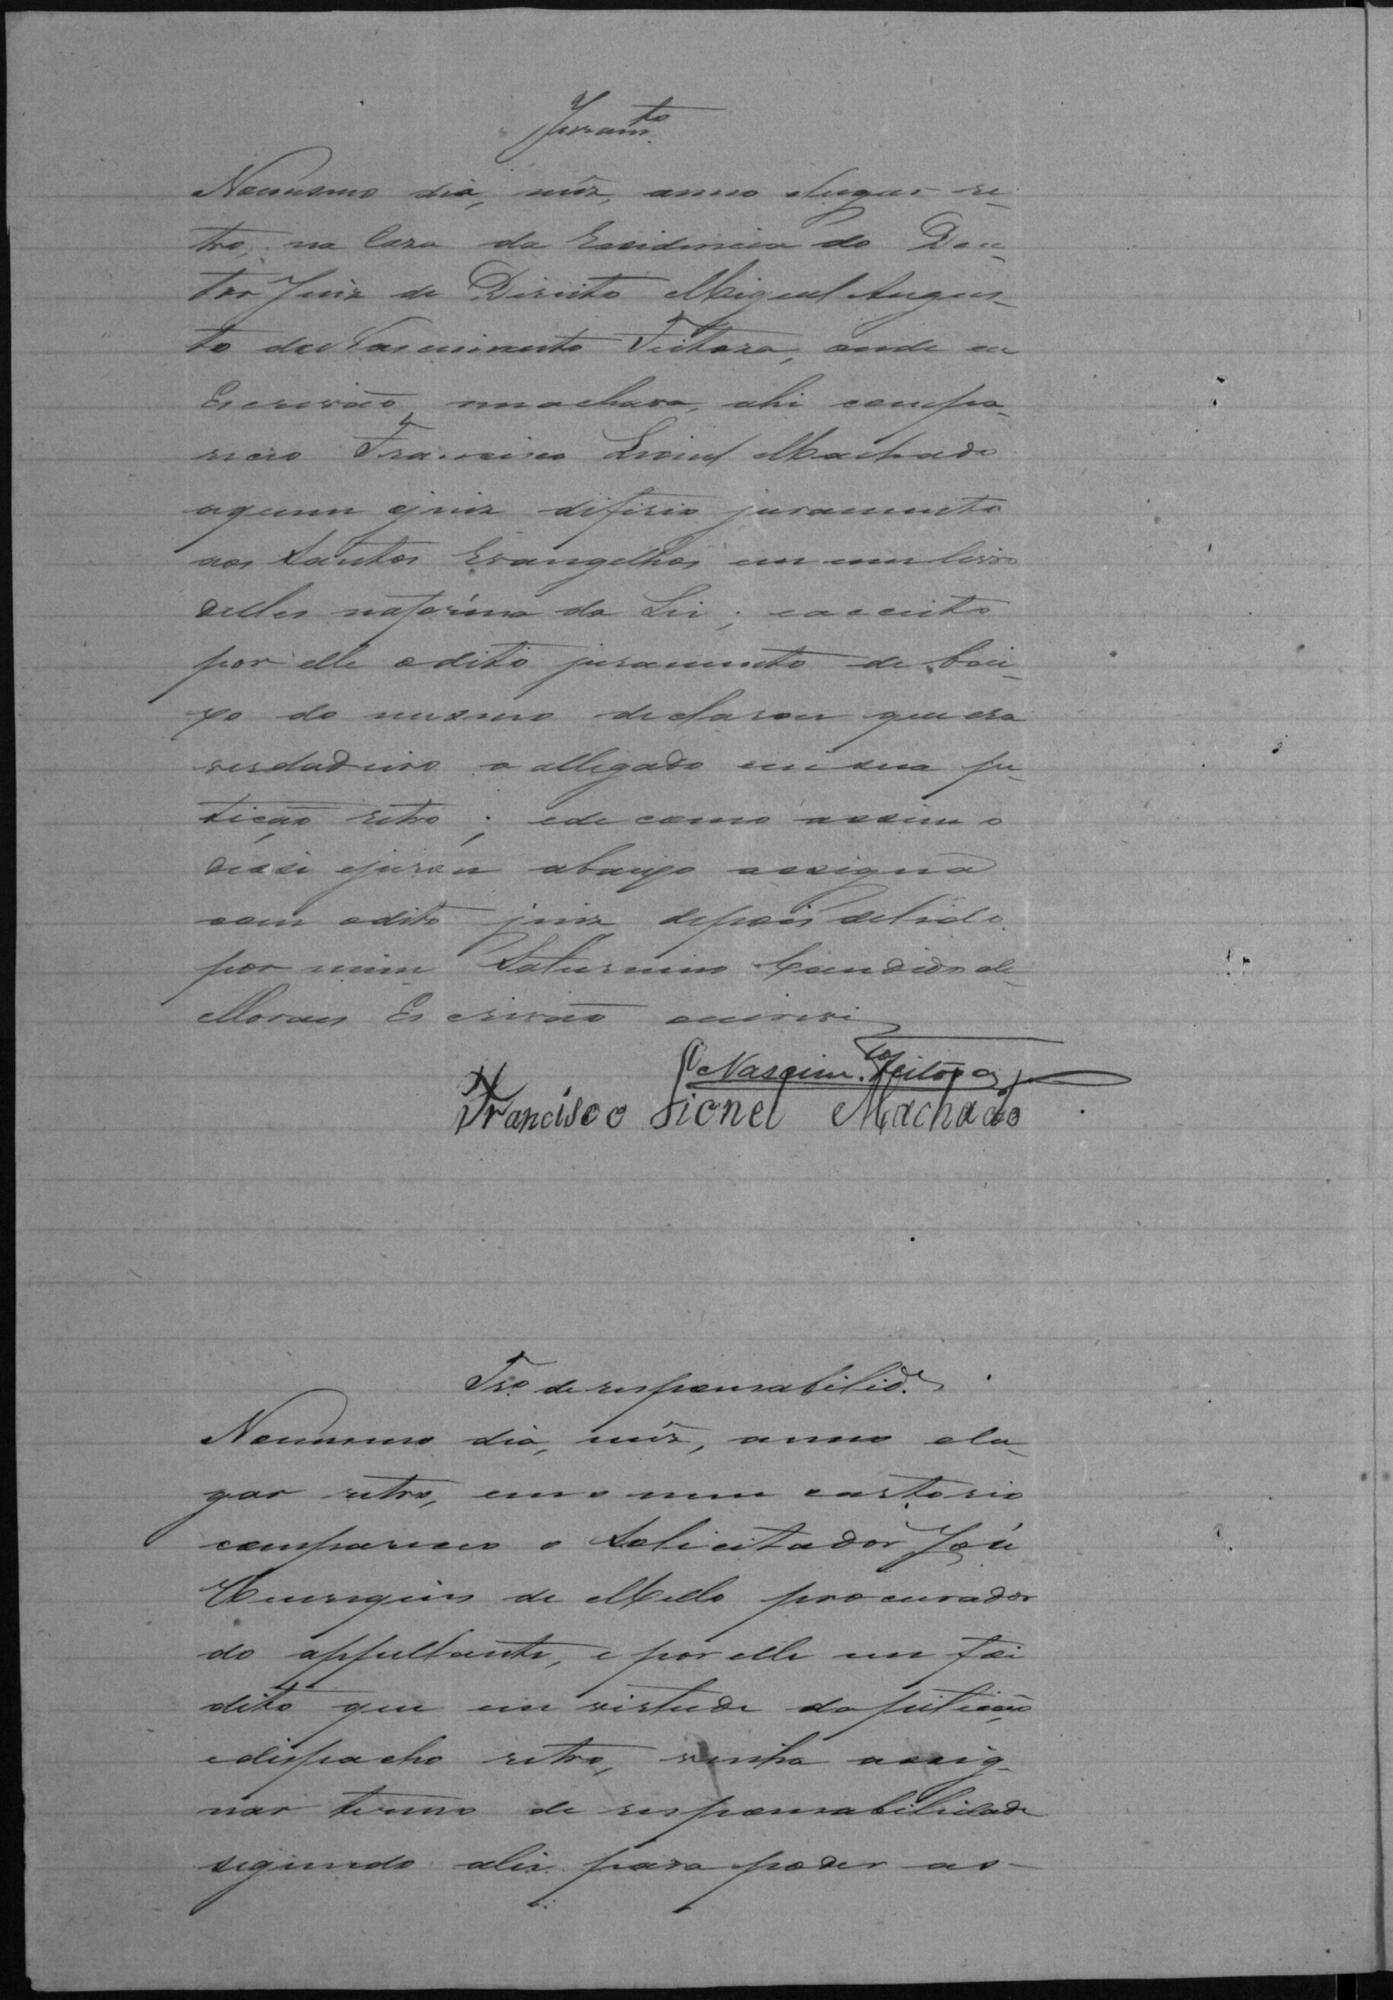 Juramto.
Nomesmo dia, mêz, anno elugar re-
tro, na Caza da Residencia do Dou-
tor Juiz de Direito Miguel Augus-
to do Nascimento Feitoza, onde eu
Escrivão me achava, ahi compa-
receo Francisco Lionel Machado
aquem ojuiz diferio juramento
aos Santos Evangelhos em um livro
delles naforma da Lei; eacceito
por elle odito juramento debai-
xo do mesmo declarou que era
verdadeiro o allegado em sua pe-
tição retro; ede como assim o
disse ejurou abaixo assigna
com odito juiz depois delido
por mim Saturnino Candido de
Moraes Escrivão escrevi
Nascimto. Feitoza
Francisco Lionel Machado
Tro. de responsabilide.
Nomesmo dia, mêz, anno elu-
gar retro, em o meu cartorio
compareceo o Solicitador José
Henriques de Mello procurador
do appellante, e por elle me foi
dito que em virtude dapetição
edispacho retro, vinha assig-
nar termo de responsabilidade
segundo alei para poder as-